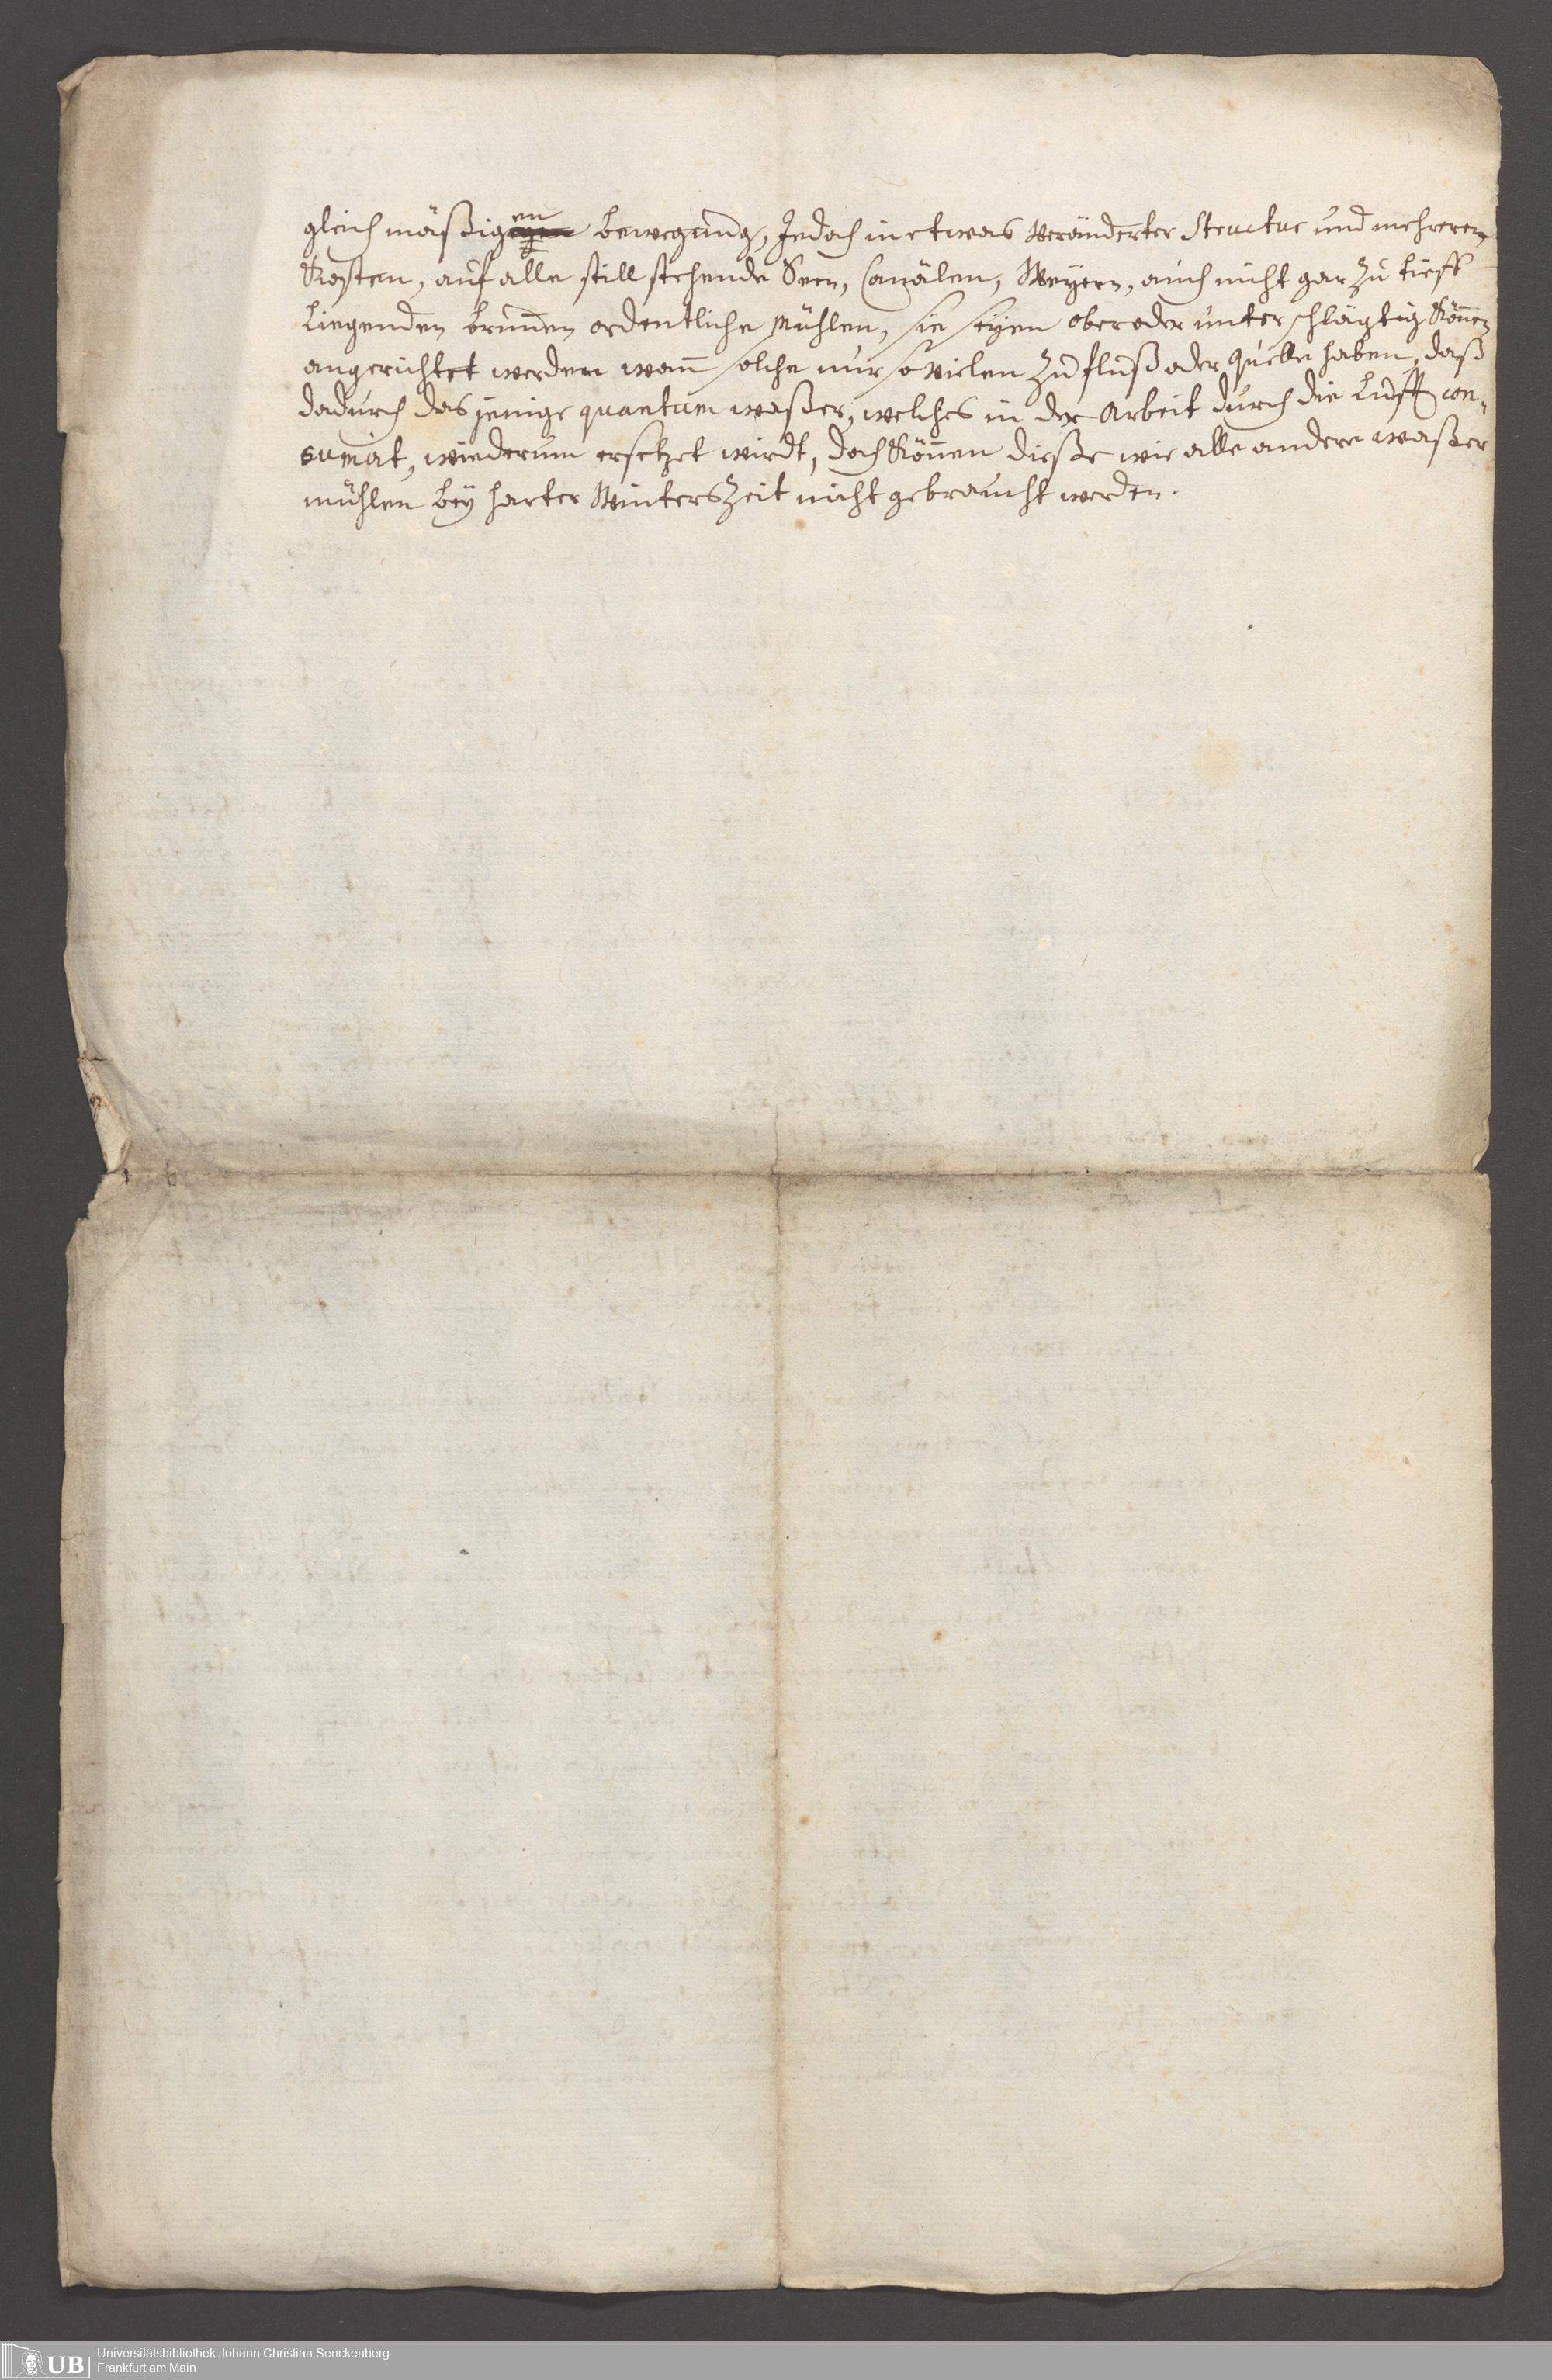 gleich mäßigen bewegung, Jedoch in etwas veränderter Structur und mehreren
Kosten, auf alle still stehende Seen, Canälen, Weyern, auch nicht gar zu tieff
liegenden brunnen ordentliche Mühlen, sie seyen ober oder unter schlägtig Könen
angerichtet werden wan̄ solche nur so vielen Zufluß oder Quelle haben, daß
dadurch das jenige quantum waßer, welches in der Arbeit durch die Lufft con-
sumirt, wiederum ersetzet wirdt, doch Kön̄en dieße wie alle andere waßer
mühlen bey harter Winters Zeit nicht gebraucht werden.
UB
Universitätsbibliothek Johann Christian Senckenberg
Frankfurt am Main